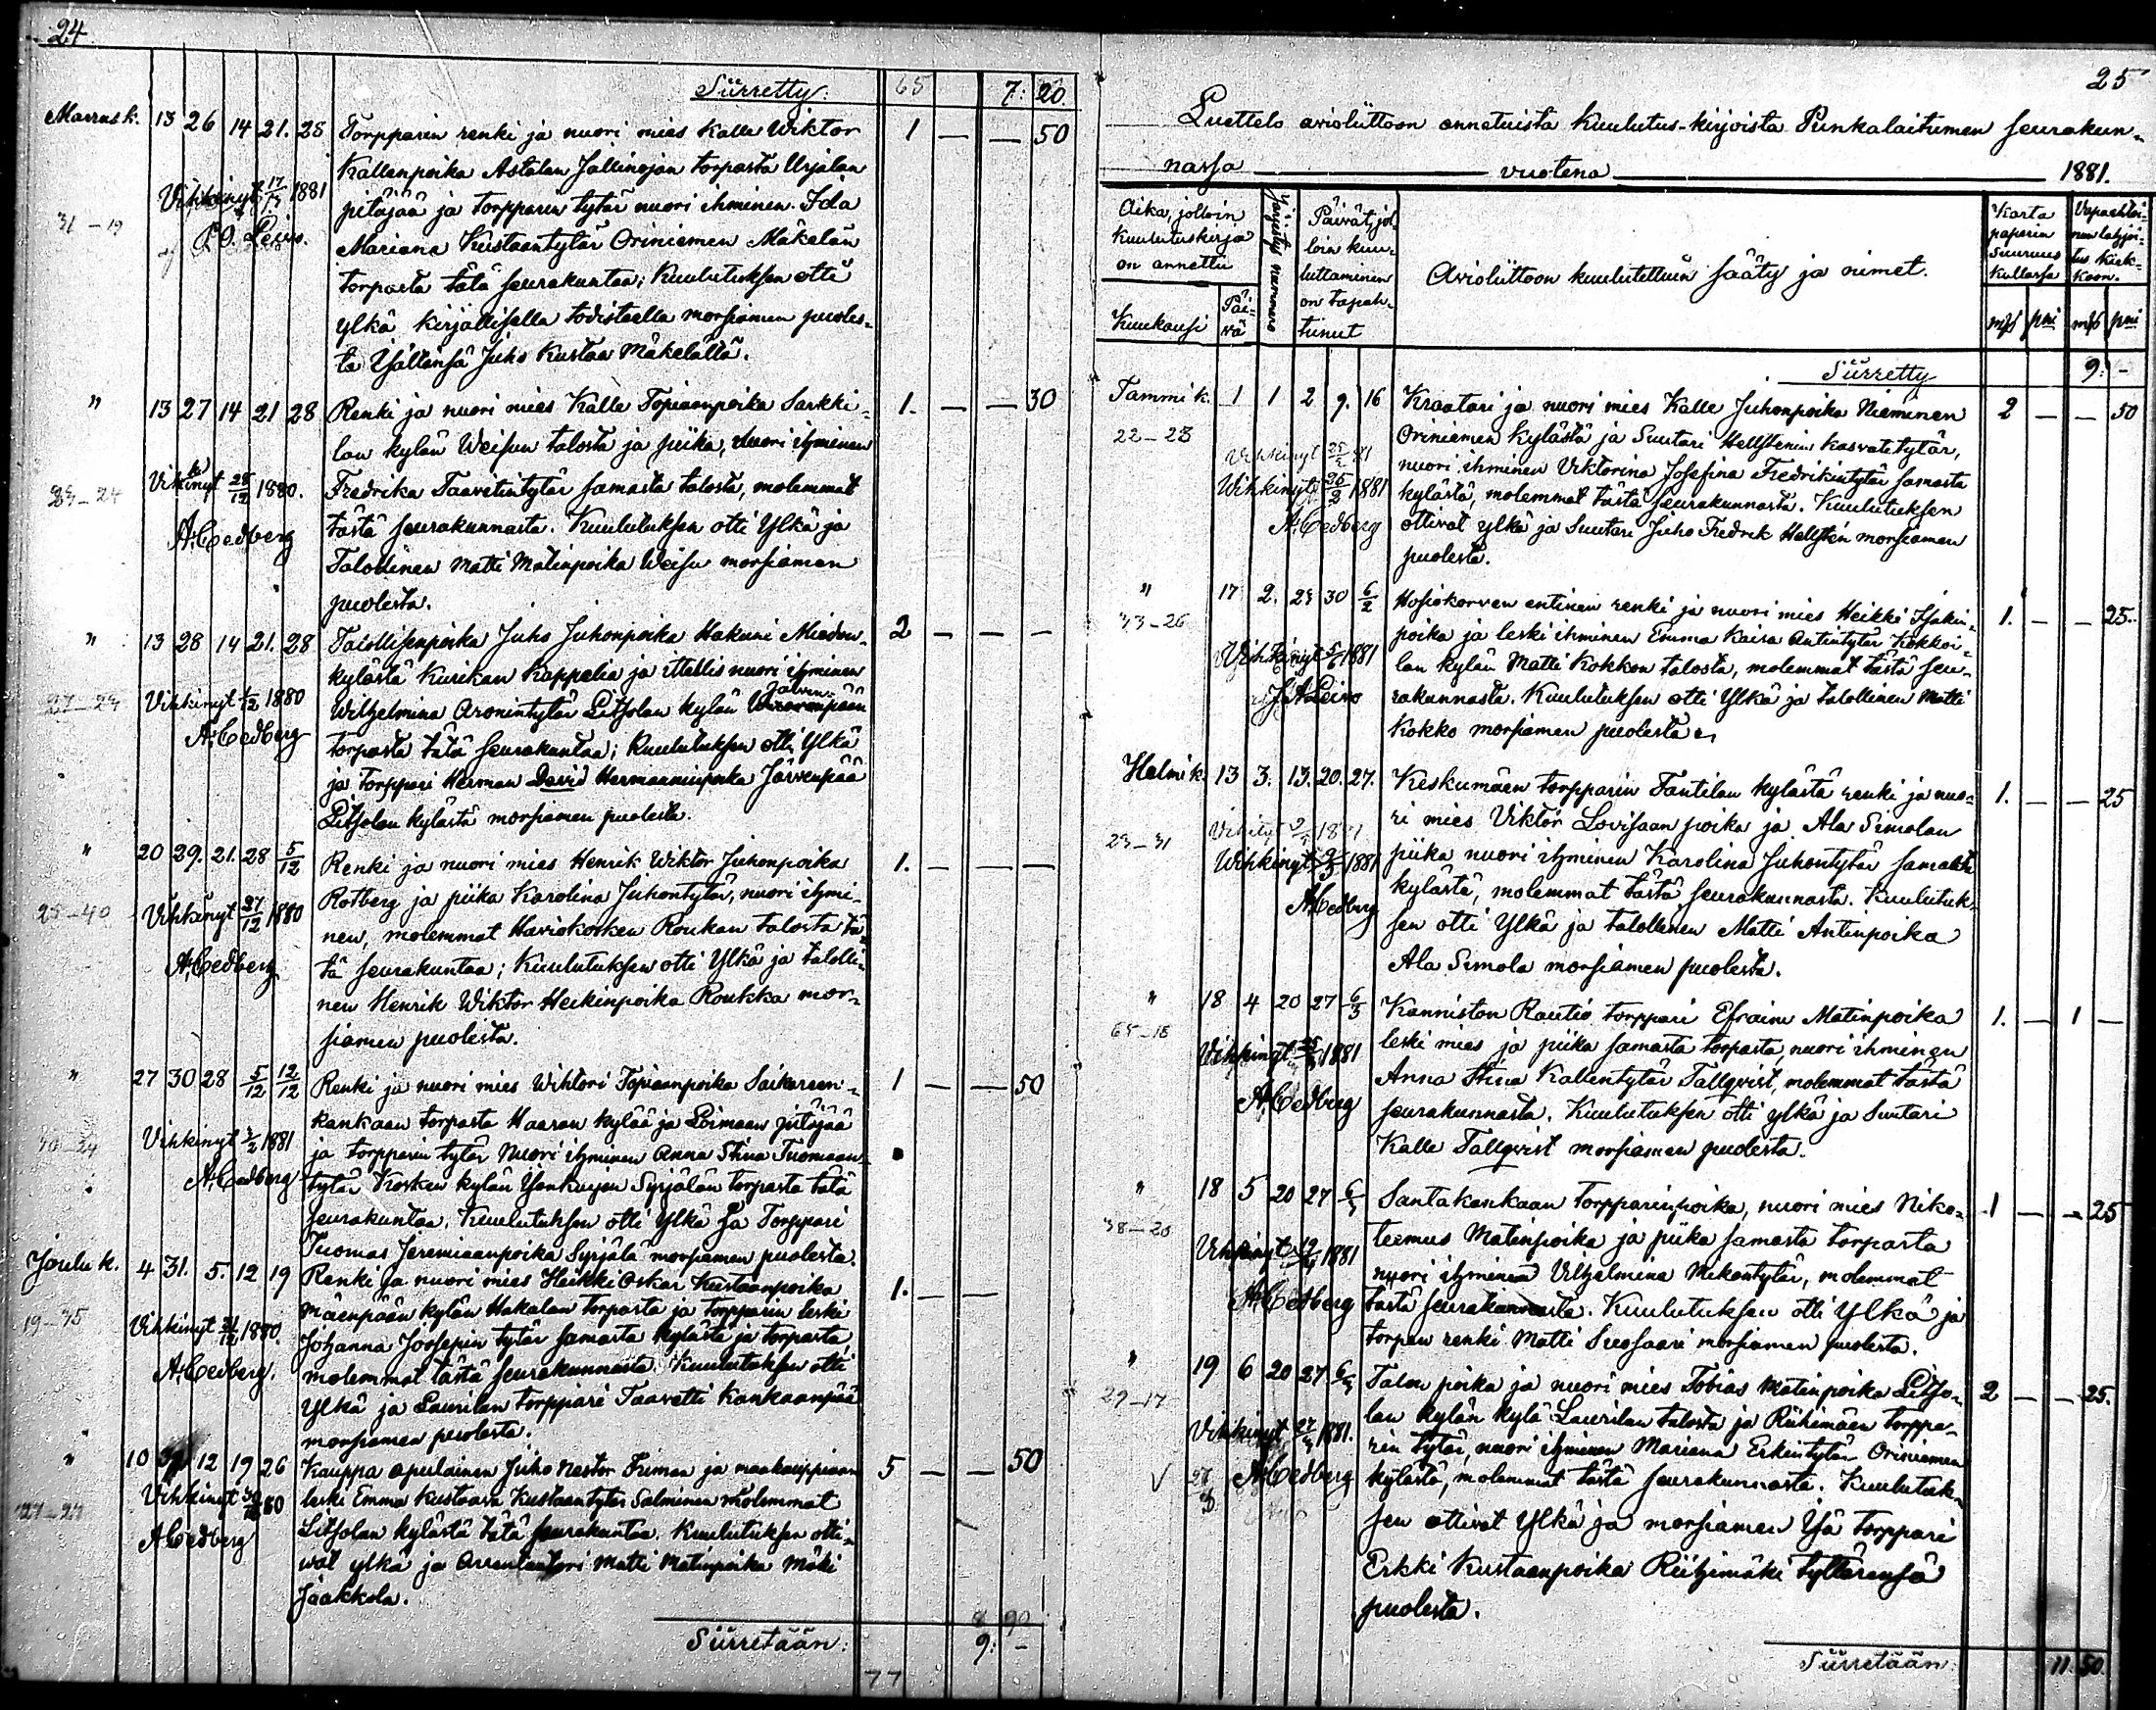 24
Siirretty: 65 7: 20.
Marrask. 13 26 14 21. 28 Torpparin renki ja nuori mies Kalle Wiktor 1 — — 50
Kallenpoika Astalan Jallinojan torpasta Urjalan
Vihkinyt 1881 pitäjää ja torpparin tytär nuori ihminen Ida
31—19 Mariana Kustaantytär Oriniemen Mäkelän
torpasta tätä seurakuntaa; Kuulutuksen otti
ylkä kirjallisella todisteella morsiamen puoles-
ta Isältänsä Juho Kustaa Mäkelältä.
" 13 27 14 21 28 Renki ja nuori mies Kalle Topiaanpoika Sarkki- 1. — — 30
lan kylän Weisun talosta ja piika, nuori ihminen
Vihkinyt 28/12 1880. Fredrika Taavetintytär samasta talosta, molemmat
A. Cedberg tästä seurakunnasta. Kuulutuksen otti Ylkä ja
Talollinen Matti Matinpoika Weisu morsiamen
puolesta.
" 13 28 14 21. 28 Talollisenpoika Juho Juhonpoika Hakuni Miedon- 2 — — —
kylästä Kurikan Kappelia ja itellis nuori ihminen
27—29 Vihkinyt 1880 Wilhelmina Aronintytär Liitsolan kylän Järvenpään
A. Cedberg torpasta tätä seurakuntaa; Kuulutuksen otti Ylkä
ja torppari Herman David Hermanninpoika Järvenpää
Liitsolan kylästä morsiamen puolesta.
" 20 29. 21. 28 5/12 Renki ja nuori mies Henrik Wiktor Juhonpoika 1. — — —
Rotberg ja piika Karolina Juhontytär, nuori ihmi-
25—40 Vihkinyt 27/12 1880 nen, molemmat Haviokosken Roukan talosta tä-
A. Cedberg tä seurakuntaa; Kuulutuksen otti Ylkä ja talolli-
nen Henrik Wiktor Heikinpoika Roukka mor-
siamen puolesta.
" 27 30 28 5/12 12/12 Renki ja nuori mies Wihtori Topiaanpoika 1 — — 50
kankaan torpasta Haaran kylää ja Loimaan pitäjää
30—24 Vihkinyt 1881 ja torpparin tytär Nuori ihminen Anna Stina Tuomaan-
A. Cedberg tytär Kosken kylän Syrjälän torpasta tätä
seurakuntaa. Kuulutuksen otti Ylkä ja Torppari
Tuomas Jeremiaanpoika Syrjälä morsiamen puolesta.
Jouluk. 4 31. 5. 12 19 Renki ja nuori mies Heikki Oskar Kustaanpoika 1. — —
Mäenpään kylän Hakalan torpasta ja torpparin leski
19—35 Vihkinyt 31/12 1880. Johanna Joosepin tytär samasta kylästä ja torpasta
A. Cedberg. molemmat tästä seurakunnasta. Kuulutuksen otti
Ylkä ja Laurilan torppari Taavetti Kankaanpää
morsiamen puolesta.
" 10 32 12 19 26 Kauppa apulainen Juho Nestor Friman ja maakauppiaan 5 — — 50
Vihkinyt 80 leski Emma Kustaava Kustaantytär Salminen molemmat
27—27 A Cedberg Liitsolan kylästä tätä seurakuntaa. Kuulutuksen otti-
wat ylkä ja Arentaatori Matti Matinpoika Mäki
Jaakkola.
8 90
Siirretään: 9: -
77
25
Luettelo avioliittoon annetuista Kuulutus-kirjoista Punkalaitumen seurakun-
nassa vuotena 1881.
Aika, jolloin Kuulutuskirja on annettu
Kuukausi Päi-vä
Järjestys numero
Päivät, jol-loin kuu-luttaminen on tapah-tunut
Avioliittoon kuulutettuin sääty ja nimet.
Karta paperin suuruus
mf pni mf pni
Siirretty 9: -
Tammik. 1 1 2 9. 16 Kraatari ja nuori mies Kalle Juhonpoika Nieminen 2 — — 50
22—23 Oriniemen kylästä ja Suutari Hellstenin kasvatetytär,
Vihkinyt 81 nuori ihminen Viktorina Josefina Fredrikintytär samasta
Wihkinyt 1881 kylästä, molemmat tästä seurakunnasta. Kuulutuksen
A. Cedberg ottivat ylkä ja Suutari Juho Fredrik Hellstén morsiamen
puolesta.
" 17 2. 23 30 6/2 entinen renki ja nuori mies Heikki Isakin- 1. — — 25.
33—26 poika ja leski ihminen Emma Kaisa Antintytär Kokkoi-
Vihkinyt 1881 lan kylän Matti Kokkon talosta, molemmat tästä seu-
rakunnasta. Kuulutuksen otti Ylkä ja talollinen Matti
Kokko morsiamen puolesta.
Helmik. 13 3. 13. 20. 27. Keskumäen torpparin Tantilan kylästä renki ja nuo- 1. — — 25
23—31 ri mies Viktor Lovisaan poika ja Ala Simolan
Wihkinyt 1881 piika nuori ihminen Karolina Juhontytär samasta
A. Cedberg kylästä, molemmat tästä seurakunnasta. Kuulutuk-
sen otti Ylkä ja talollinen Matti Antinpoika
Ala Simola morsiamen puolesta.
" 18 4 20 27 6/3 Kanniston Rautio torppari Efraim Matinpoika 1. — 1 —
65—18 leski mies ja piika samasta torpasta, nuori ihminen
Vihkinyt 1881 Anna Stina Kallentytär Tallqvist, molemmat tästä
A. Cedberg seurakunnasta. Kuulutuksen otti ylkä ja Suutari
Kalle Tallqvist morsiamen puolesta.
" 18 5 20 27 6/3 Santakankaan Torpparinpoika, nuori mies Niko- 1 — — 25
38—20 teemus Matinpoika ja piika samasta torpasta
Vihkinyt 1881 nuori ihminen Vilhelmina Mikontytär, molemmat
A. Cedberg tästä seurakunnasta. Kuulutuksen otti Ylkä ja
torpan renki Matti Suosaari morsiamen puolesta.
" 19 6 20 27 6/3 Talon poika ja nuori mies Tobias Matinpoika Liitso- 2 — — 25.
29—17 lan kylän kylä Laurilan talosta ja Riihimäen torppa-
Vihkinyt 1881. rin tytär, nuori ihminen Mariana Erkintytär Oriniemen
A. Cedberg kylästä, molemmat tästä seurakunnasta. Kuulutuk-
sen ottivat Ylkä ja morsiamen Isä torppari
Erkki Kustaanpoika Riihimäki tyttärensä
puolesta.
Siirretään 11. 50.